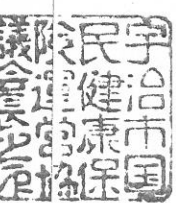 宇治市国
民健康保
険運営協
議会長之印